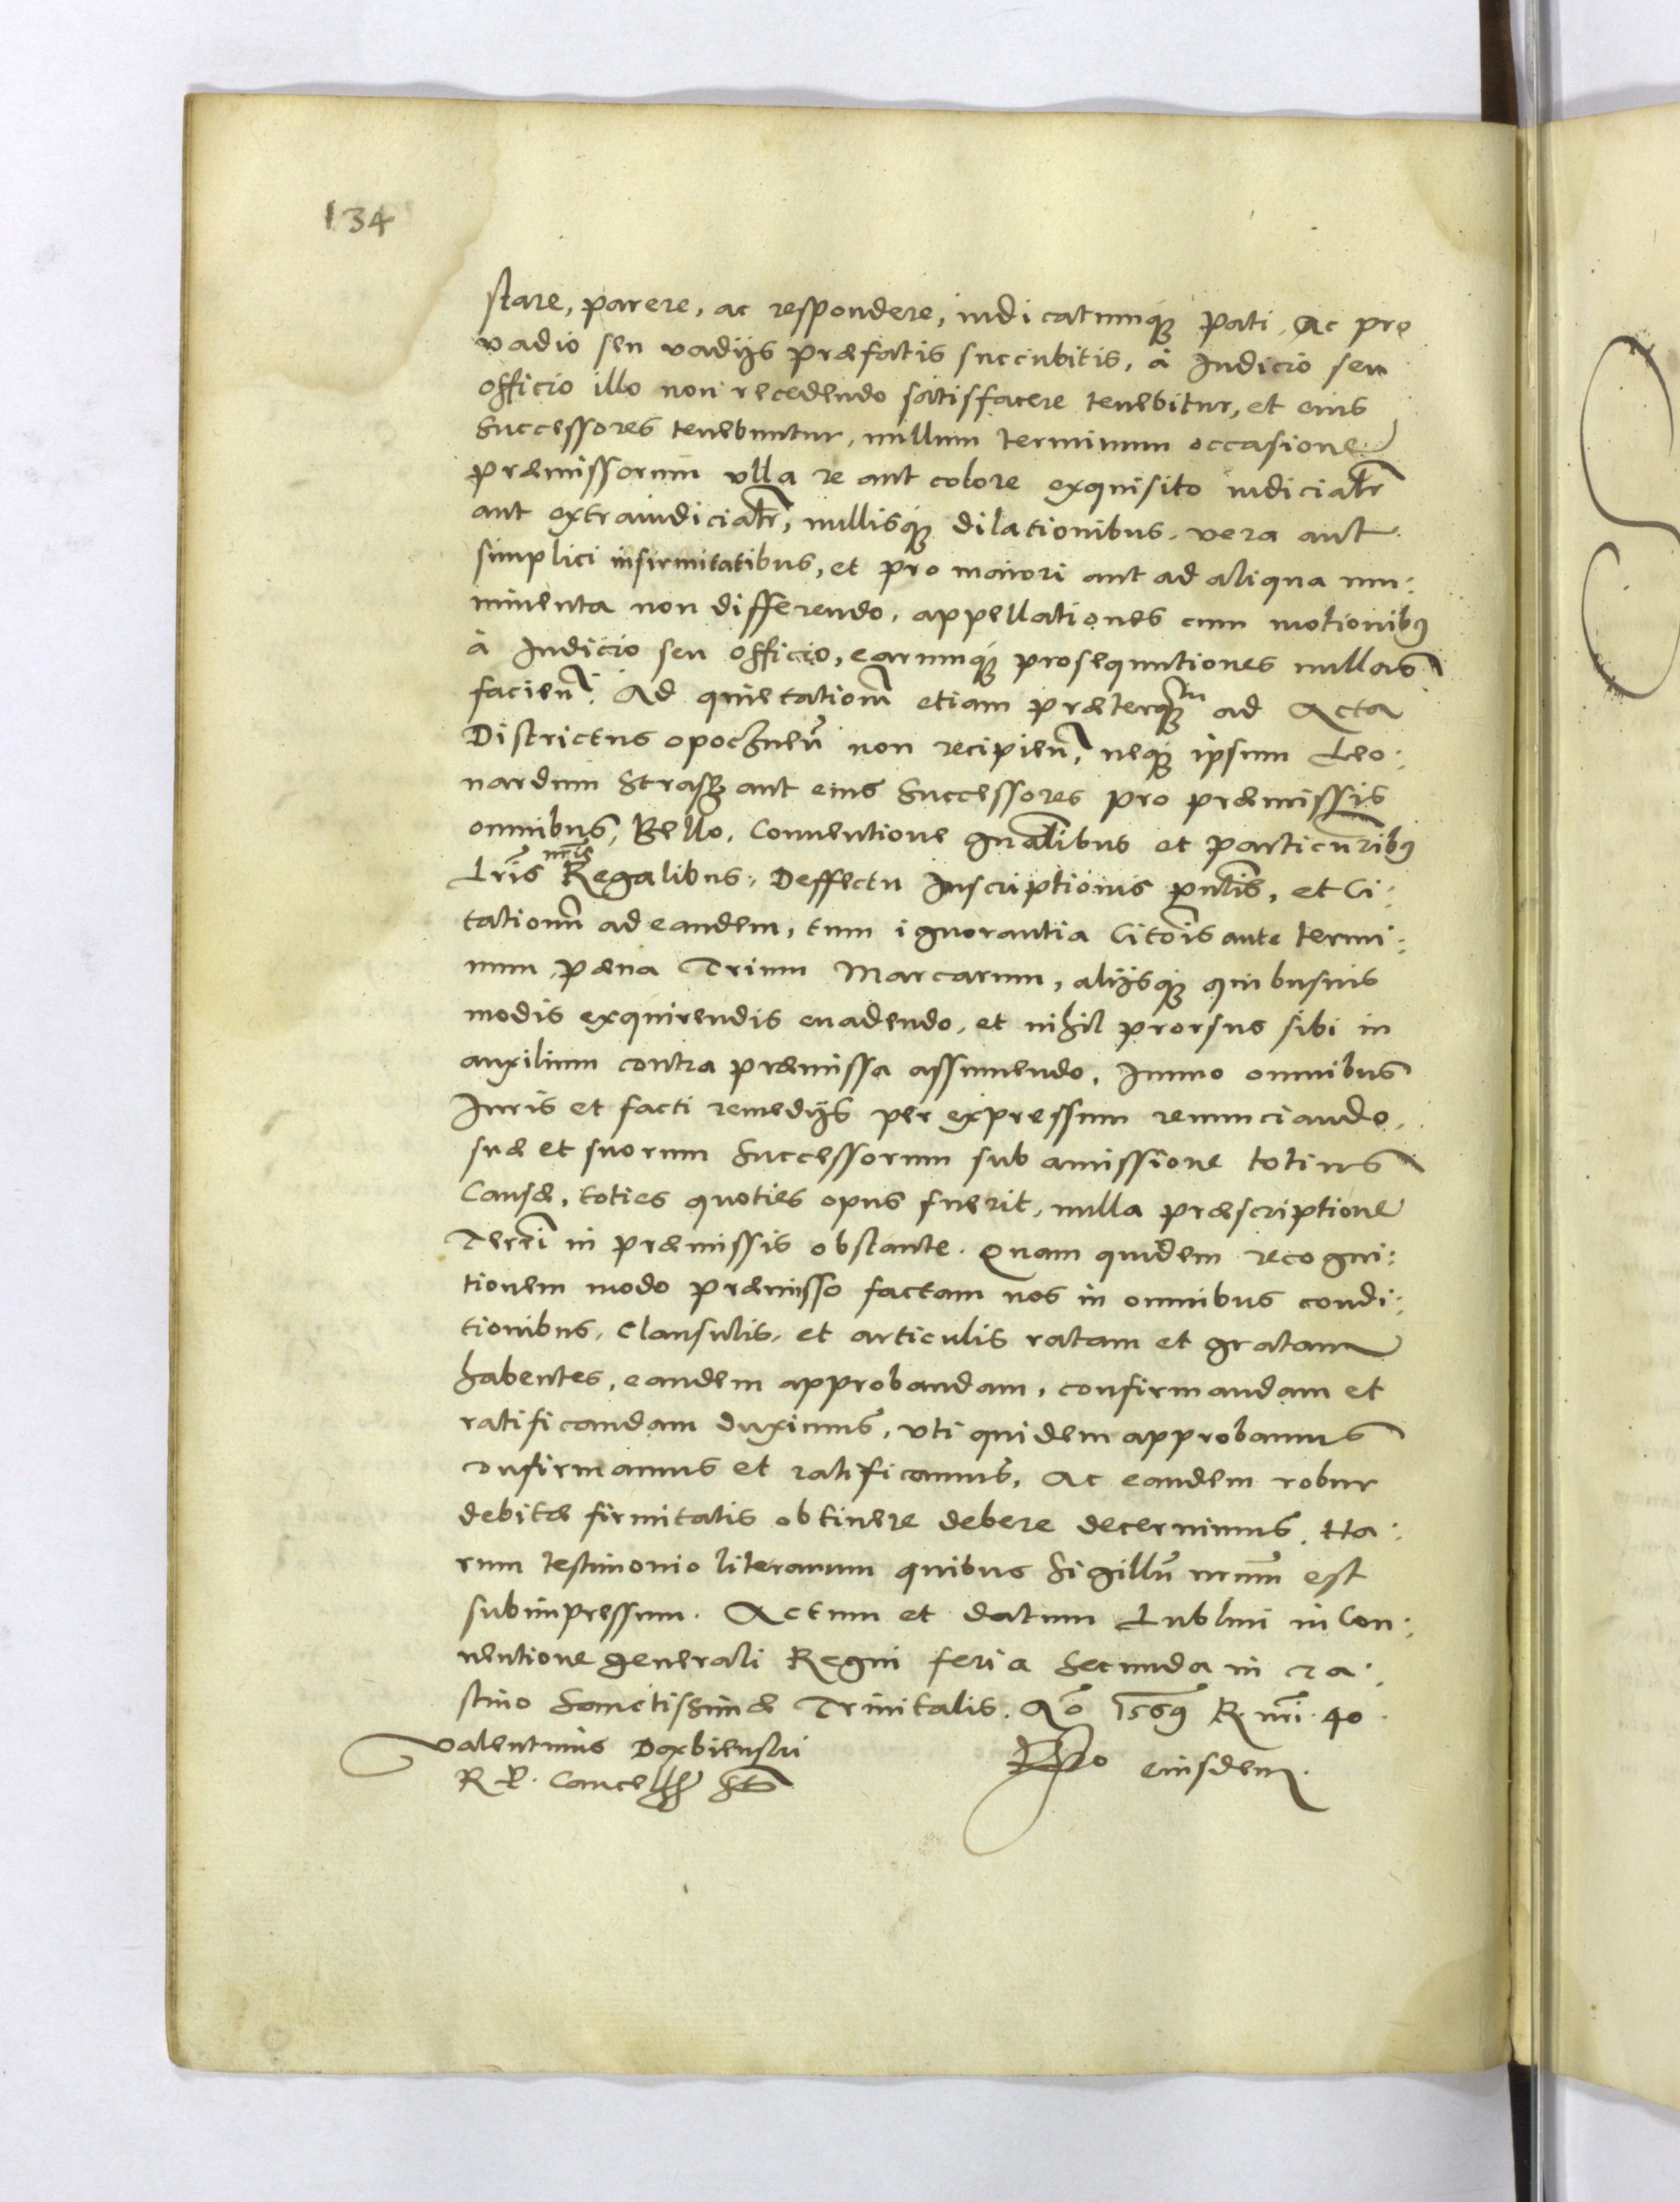 134
stare, parere, ac respondere, iudicatumq̃ pati, Ac pro
vadio seu vadijs præfatis succubitis, à Iudicio seu
officio illo non recedendo satisfacere tenebitur, et eius
Successores tenebuntur, nullum terminum occasione
præmissorum vlla re aut colore exquisito iudicialr̃
aut extraiudicialr̃, nullisq̃ dilationibus, vera aut
simplici infirmitatibus, et pro maiori aut ad aliqua mu:
nimenta non differendo, appellationes cum motionibꝰ
à Iudicio seu officio, earumq̃ prosequutiones nullas
facien̄. Ad quietationē etiam præterq̃ ad Acta
Districtus opocznen̄ non recipien̄, neq̃ ipsum Leo:
nardum Strasz aut eius Successores pro præmissis
omnibus, Bello, Conuentione gnãlibus et particũribꝰ
Lr̃is nr̃is Regalibus, Deffectu Inscriptionis pn̄tis, et Ci:
tationū ad eandem, tum ignorantia Citõis ante termi:
num, pæna Trium Marcarum, alijsq̃ quibusuis
modis exquirendis euadendo, et nihil prorsus sibi in
auxilium contra præmissa assumendo, Immo omnibus
Iuris et facti remedijs per expressum renunciando,
suæ et suorum Successorum sub amissione totius
Causæ, toties quoties opus fuerit, nulla præscriptione
Terr̃i in præmissis obstante. Quam quidem recogni:
tionem modo præmisso factam nos in omnibus condi:
tionibus, Clausulis, et articulis ratam et gratam
habentes, eandem approbandam, confirmandam et
ratificandam duximus, vti quidem approbamus
confirmamus et ratificamus, Ac eandem robur
debitæ firmitatis obtinere debere decernimus. Ha:
rum testimonio literarum quibus Sigillū nr̃um est
subimpressum. Actum et datum Lublini in Con:
uentione generali Regni feria Secunda in cra:
stino Sanctissimæ Trinitatis. Aō 1569 R. nr̃i. 40.
Valentinus Dąbienski
R. P. Cancell̃ sst
Rlo eiusdem.